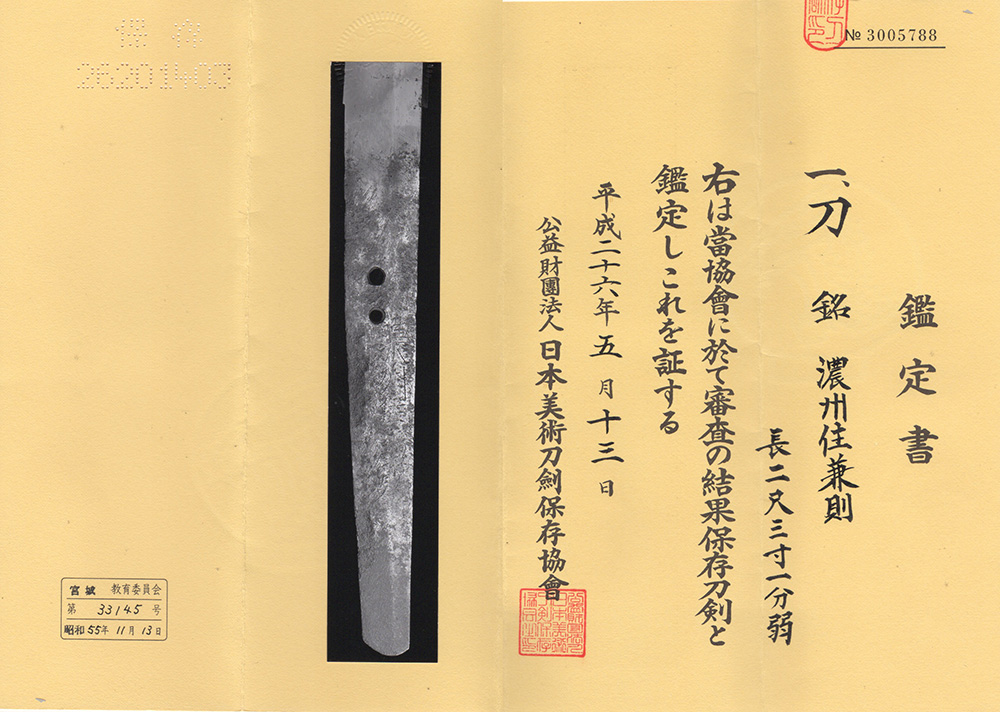 № 3005788
鑑定書
一、刀 銘 濃州住兼則
長二尺三寸一分弱
右は當協會に於て審査の結果保存刀剣と
鑑定しこれを証する
平成二十六年五月十三日
公益財團法人日本美術刀劍保存協會
保存
26201403
宮城 教育委員会
第 33145 号
昭和55年11月13日